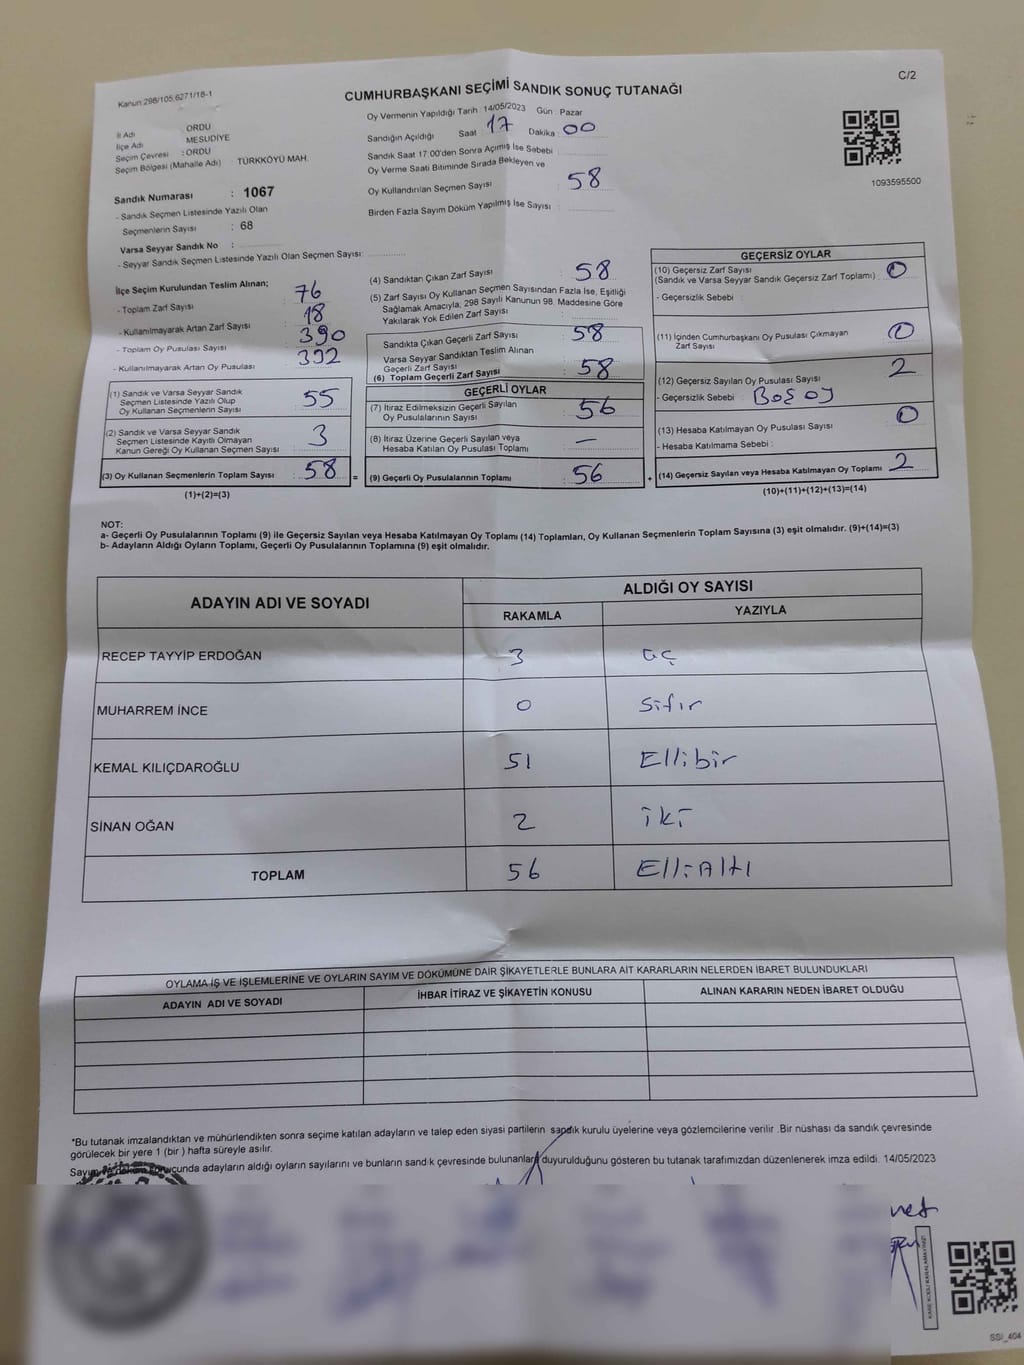 C/2
Kanun 298/105 6271/18-1
CUMHURBAŞKANI SEÇİMİ SANDIK SONUÇ TUTANAĞI
İl Adı : ORDU
İlçe Adı : MESUDİYE
Seçim Çevresi : ORDU
Seçim Bölgesi (Mahalle Adı) : TÜRKKÖYÜ MAH.
Sandık Numarası : 1067
- Sandık Seçmen Listesinde Yazılı Olan
Seçmenlerin Sayısı : 68
Varsa Seyyar Sandık No :
- Seyyar Sandık Seçmen Listesinde Yazılı Olan Seçmen Sayısı:
Oy Vermenin Yapıldığı Tarih : 14/05/2023 Gün : Pazar
Sandığın Açıldığı Saat : 17 Dakika : 00
Sandık Saat 17:00'den Sonra Açımış İse Sebebi :
Oy Verme Saati Bitiminde Sırada Bekleyen ve
Oy Kullandırılan Seçmen Sayısı : 58
Birden Fazla Sayım Döküm Yapılmış İse Sayısı :
1093595500
İlçe Seçim Kurulundan Teslim Alınan;
- Toplam Zarf Sayısı : 76
- Kullanılmayarak Artan Zarf Sayısı : 18
- Toplam Oy Pusulası Sayısı : 390
- Kullanılmayarak Artan Oy Pusulası : 332
(1) Sandık ve Varsa Seyyar Sandık
Seçmen Listesinde Yazılı Olup
Oy Kullanan Seçmenlerin Sayısı : 55
(2) Sandık ve Varsa Seyyar Sandık
Seçmen Listesinde Kayıtlı Olmayan
Kanun Gereği Oy Kullanan Seçmen Sayısı : 3
(3) Oy Kullanan Seçmenlerin Toplam Sayısı : 58
(1)+(2)=(3)
(4) Sandıktan Çıkan Zarf Sayısı : 58
(5) Zarf Sayısı Oy Kullanan Seçmen Sayısından Fazla İse, Eşitliği
Sağlamak Amacıyla, 298 Sayılı Kanunun 98. Maddesine Göre
Yakılarak Yok Edilen Zarf Sayısı :
Sandıkta Çıkan Geçerli Zarf Sayısı : 58
Varsa Seyyar Sandıktan Teslim Alınan
Geçerli Zarf Sayısı :
(6) Toplam Geçerli Zarf Sayısı : 58
GEÇERLİ OYLAR
(7) İtiraz Edilmeksizin Geçerli Sayılan
Oy Pusulalarının Sayısı : 56
(8) İtiraz Üzerine Geçerli Sayılan veya
Hesaba Katılan Oy Pusulası Toplamı : —
= (9) Geçerli Oy Pusulalarının Toplamı : 56
GEÇERSİZ OYLAR
(10) Geçersiz Zarf Sayısı
(Sandık ve Varsa Seyyar Sandık Geçersiz Zarf Toplamı) : 0
- Geçersizlik Sebebi :
(11) İçinden Cumhurbaşkanı Oy Pusulası Çıkmayan
Zarf Sayısı : 0
(12) Geçersiz Sayılan Oy Pusulası Sayısı : 2
- Geçersizlik Sebebi : Boş oy
(13) Hesaba Katılmayan Oy Pusulası Sayısı : 0
- Hesaba Katılmama Sebebi :
+ (14) Geçersiz Sayılan veya Hesaba Katılmayan Oy Toplamı : 2
(10)+(11)+(12)+(13)=(14)
NOT:
a- Geçerli Oy Pusulalarının Toplamı (9) ile Geçersiz Sayılan veya Hesaba Katılmayan Oy Toplamı (14) Toplamları, Oy Kullanan Seçmenlerin Toplam Sayısına (3) eşit olmalıdır. (9)+(14)=(3)
b- Adayların Aldığı Oyların Toplamı, Geçerli Oy Pusulalarının Toplamına (9) eşit olmalıdır.
ADAYIN ADI VE SOYADI ALDIĞI OY SAYISI
RAKAMLA YAZIYLA
RECEP TAYYİP ERDOĞAN 3 üç
MUHARREM İNCE 0 Sıfır
KEMAL KILIÇDAROĞLU 51 Ellibir
SİNAN OĞAN 2 iki
TOPLAM 56 ElliAltı
OYLAMA İŞ VE İŞLEMLERİNE VE OYLARIN SAYIM VE DÖKÜMÜNE DAİR ŞİKAYETLERLE BUNLARA AİT KARARLARIN NELERDEN İBARET BULUNDUKLARI
ADAYIN ADI VE SOYADI İHBAR İTİRAZ VE ŞİKAYETİN KONUSU ALINAN KARARIN NEDEN İBARET OLDUĞU
*Bu tutanak imzalandıktan ve mühürlendikten sonra seçime katılan adayların ve talep eden siyasi partilerin sandık kurulu üyelerine veya gözlemcilerine verilir .Bir nüshası da sandık çevresinde
görülecek bir yere 1 (bir ) hafta süreyle asılır.
Sayım ve döküm sonucunda adayların aldığı oyların sayılarını ve bunların sandık çevresinde bulunanlara duyurulduğunu gösteren bu tutanak tarafımızdan düzenlenerek imza edildi. 14/05/2023
SSI_404